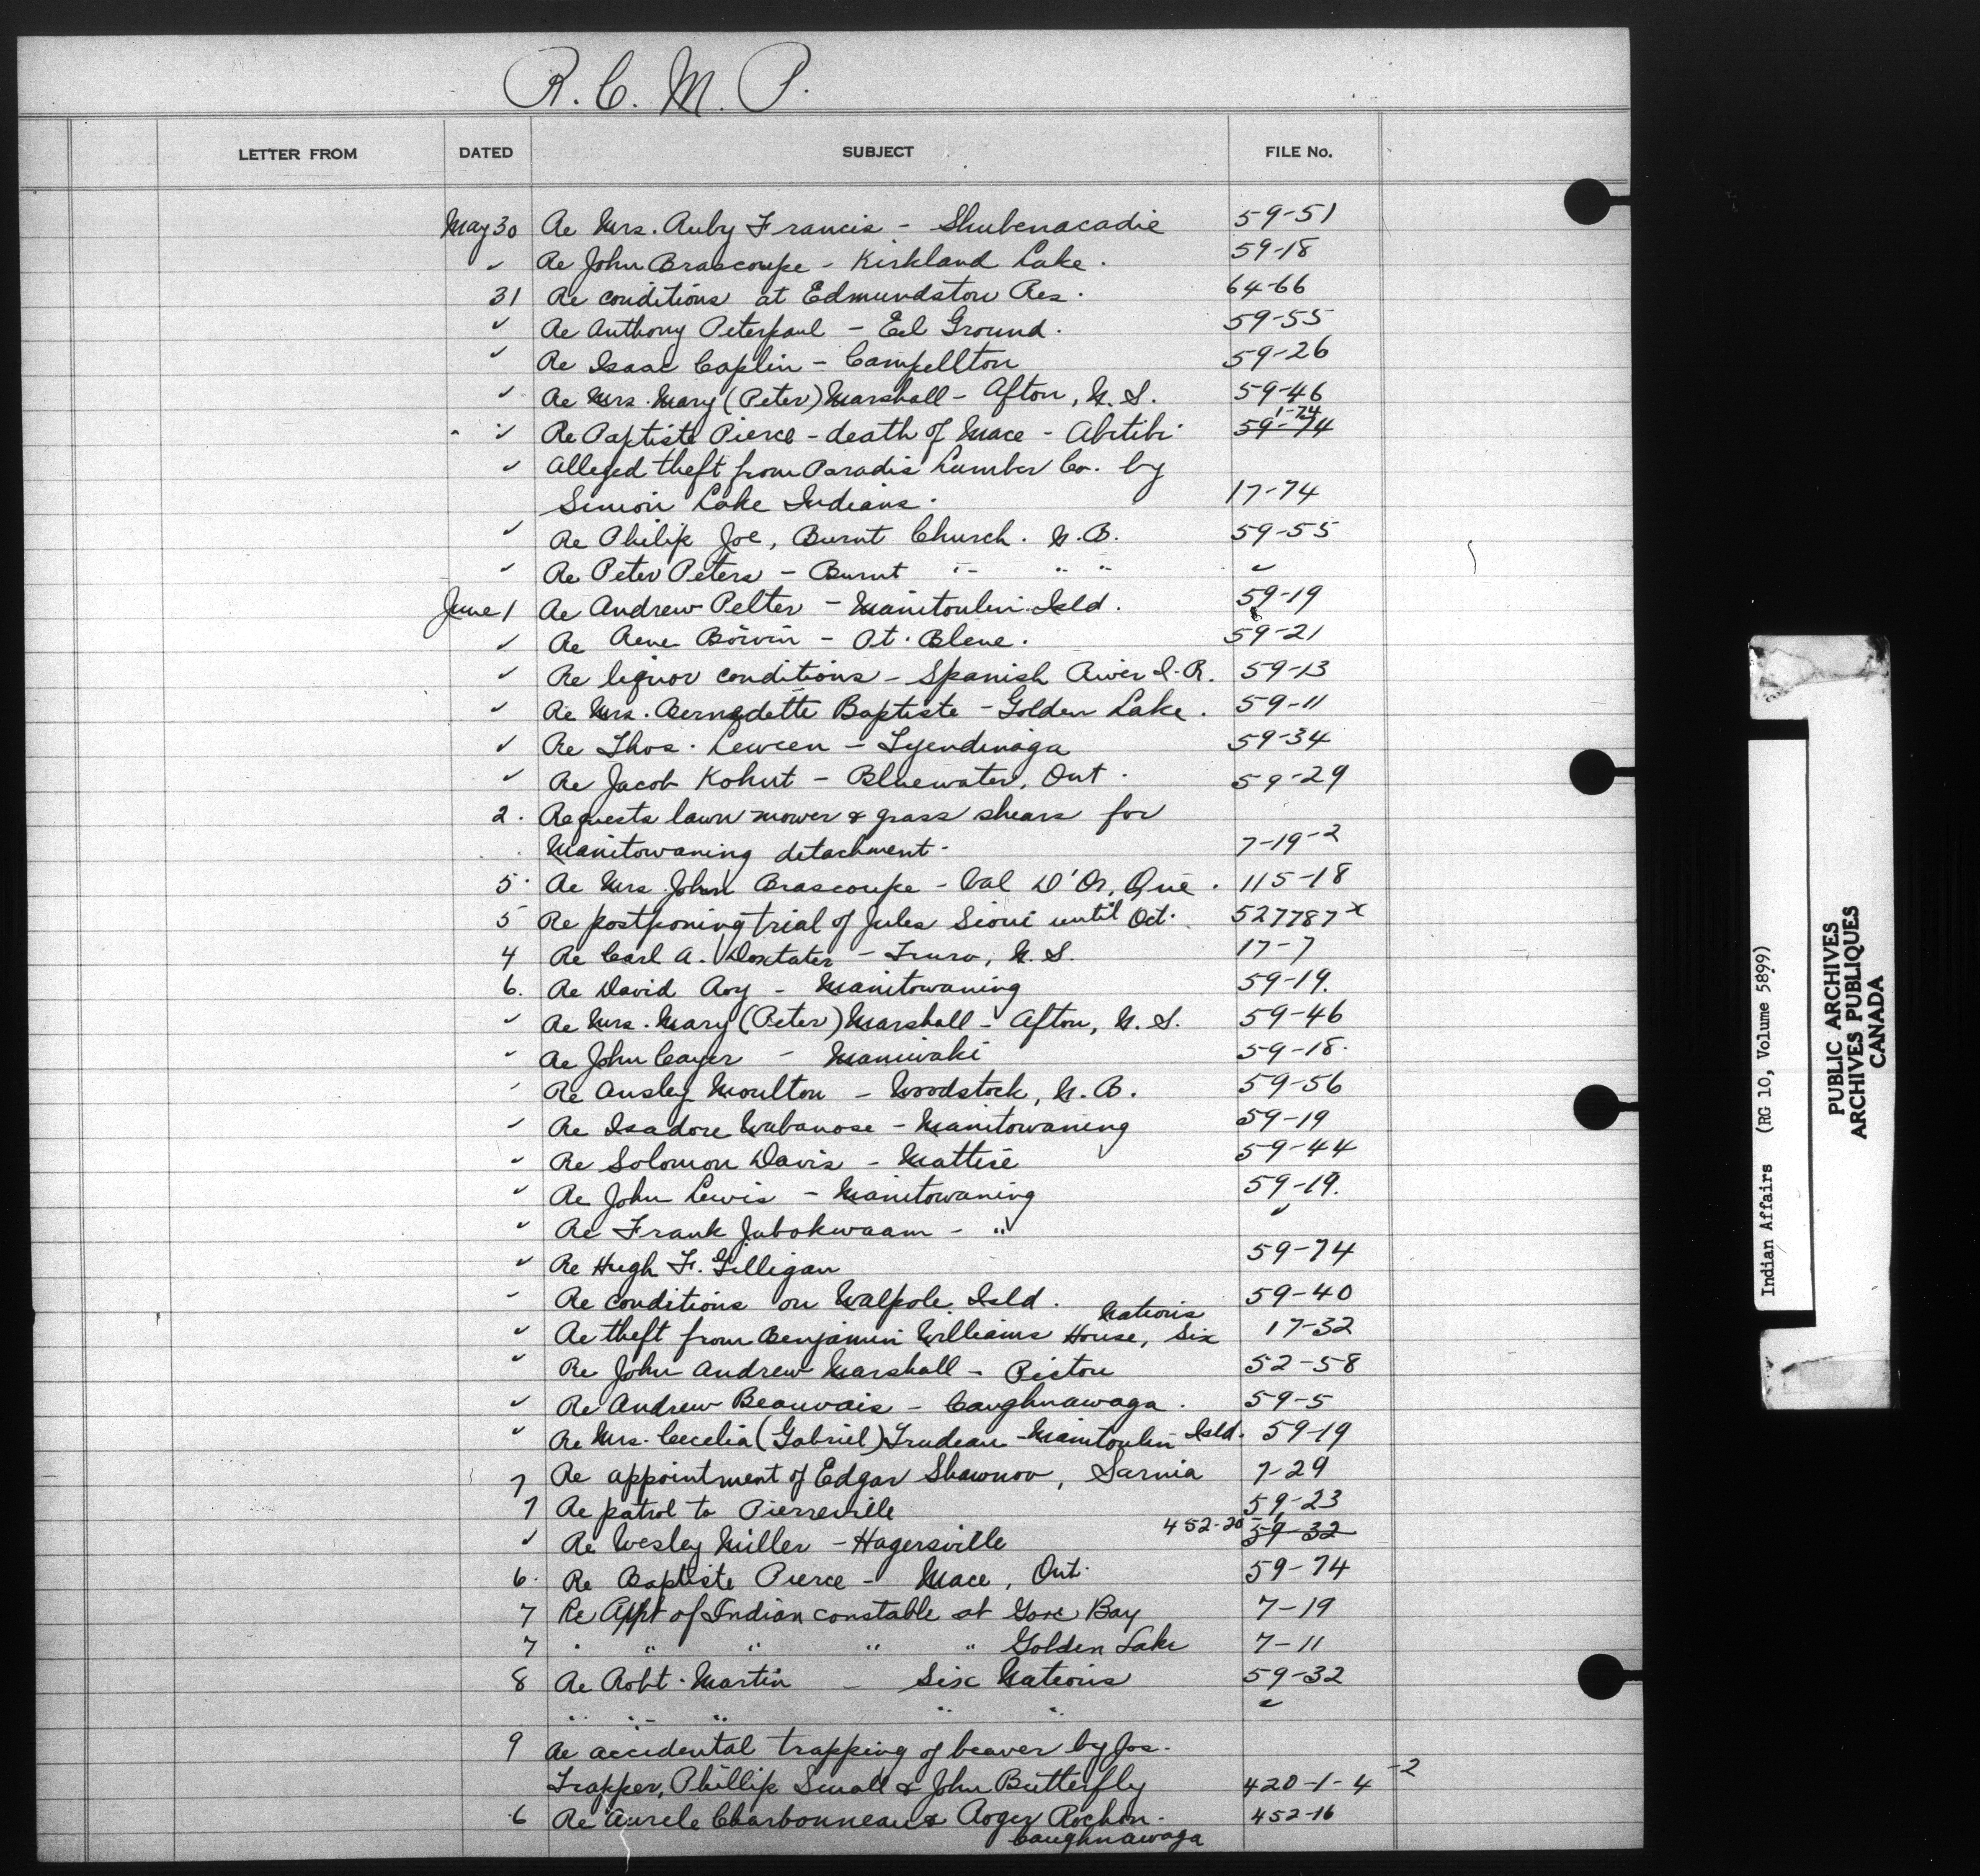 R. C. M. P.
LETTER FROM DATED SUBJECT FILE No.
May 30 Re Mrs. Ruby Francis - Shubenacadie 59-51
✓ Re John Brascoupe - Kirkland Lake. 59-18
31 Re conditions at Edmundston Res. 64-66
✓ Re Anthony Peterpaul - Eel Ground. 59-55
✓ Re Isaac Caplin - Campellton 59-26
✓ Re Mrs. Mary (Peter) Marshall - Afton, N.S. 59-46
1-74
✓ Re Baptiste Pierce - death of Mace - Abitibi 59-74
✓ Alleged theft from Paradis Lumber Co. by
Simon Lake Indians. 17-74
✓ Re Philip Joe, Burnt Church. N.B. 59-55
✓ Re Peter Peters - Burnt " " " ✓
June 1 Re Andrew Pelter - Manitoulin Isld. 59-19
✓ Re Rene Boivin - Pt. Bleue. 59-21
✓ Re liquor conditions - Spanish River I.R. 59-13
✓ Re Mrs. Bernadette Baptiste - Golden Lake. 59-11
✓ Re Thos. Leween - Tyendinaga 59-34
✓ Re Jacob Kohut - Bluewater, Ont. 59-29
2. Requests lawn mower & grass shears for
Manitowaning detachment. 7-19-2
5. Re Mrs. John Brascoupe - Val D'Or, Que. 115-18
5 Re postponing trial of Jules Sioui until Oct. 527787x
4 Re Carl A. Doxtater - Truro, N.S. 17-7
6. Re David Roy - Manitowaning 59-19.
✓ Re Mrs. Mary (Peter) Marshall - Afton, N.S. 59-46
✓ Re John Cayer - Maniwaki 59-18.
✓ Re Ansley Moulton - Woodstock, N.B. 59-56
✓ Re Isadore Wabanose - Manitowaning 59-19
✓ Re Solomon Davis - Mattice 59-44
✓ Re John Lewis - Manitowaning 59-19.
✓ Re Frank Jabokwaam - " ✓
✓ Re Hugh F. Gilligan 59-74
✓ Re conditions on Walpole Isld. 59-40
Nations
✓ Re theft from Benjamin Williams House, Six 17-32
✓ Re John Andrew Marshall - Pictou 52-58
✓ Re Andrew Beauvais - Caughnawaga. 59-5
✓ Re Mrs. Cecelia (Gabriel) Trudeau - Manitoulin Isld. 59-19
7 Re appointment of Edgar Shawnoo, Sarnia 7-29
7 Re patrol to Pierreville 59-23
✓ Re Wesley Miller - Hagersville 452-20 59-32
6. Re Baptiste Pierce - Mace, Ont. 59-74
7 Re Appt of Indian constable at Gore Bay 7-19
7 " " " " " Golden Lake 7-11
8 Re Robt. Martin - Six Nations 59-32
" " " " " ✓
9 Re accidental trapping of beaver by Jos.
Trapper, Phillip Small & John Butterfly 420-1-4-2
6 Re Aurele Charbonneau & Roger Rochon. 452-16
Caughnawaga
Indian Affairs (RG 10, Volume 5899)
PUBLIC ARCHIVES
ARCHIVES PUBLIQUES
CANADA